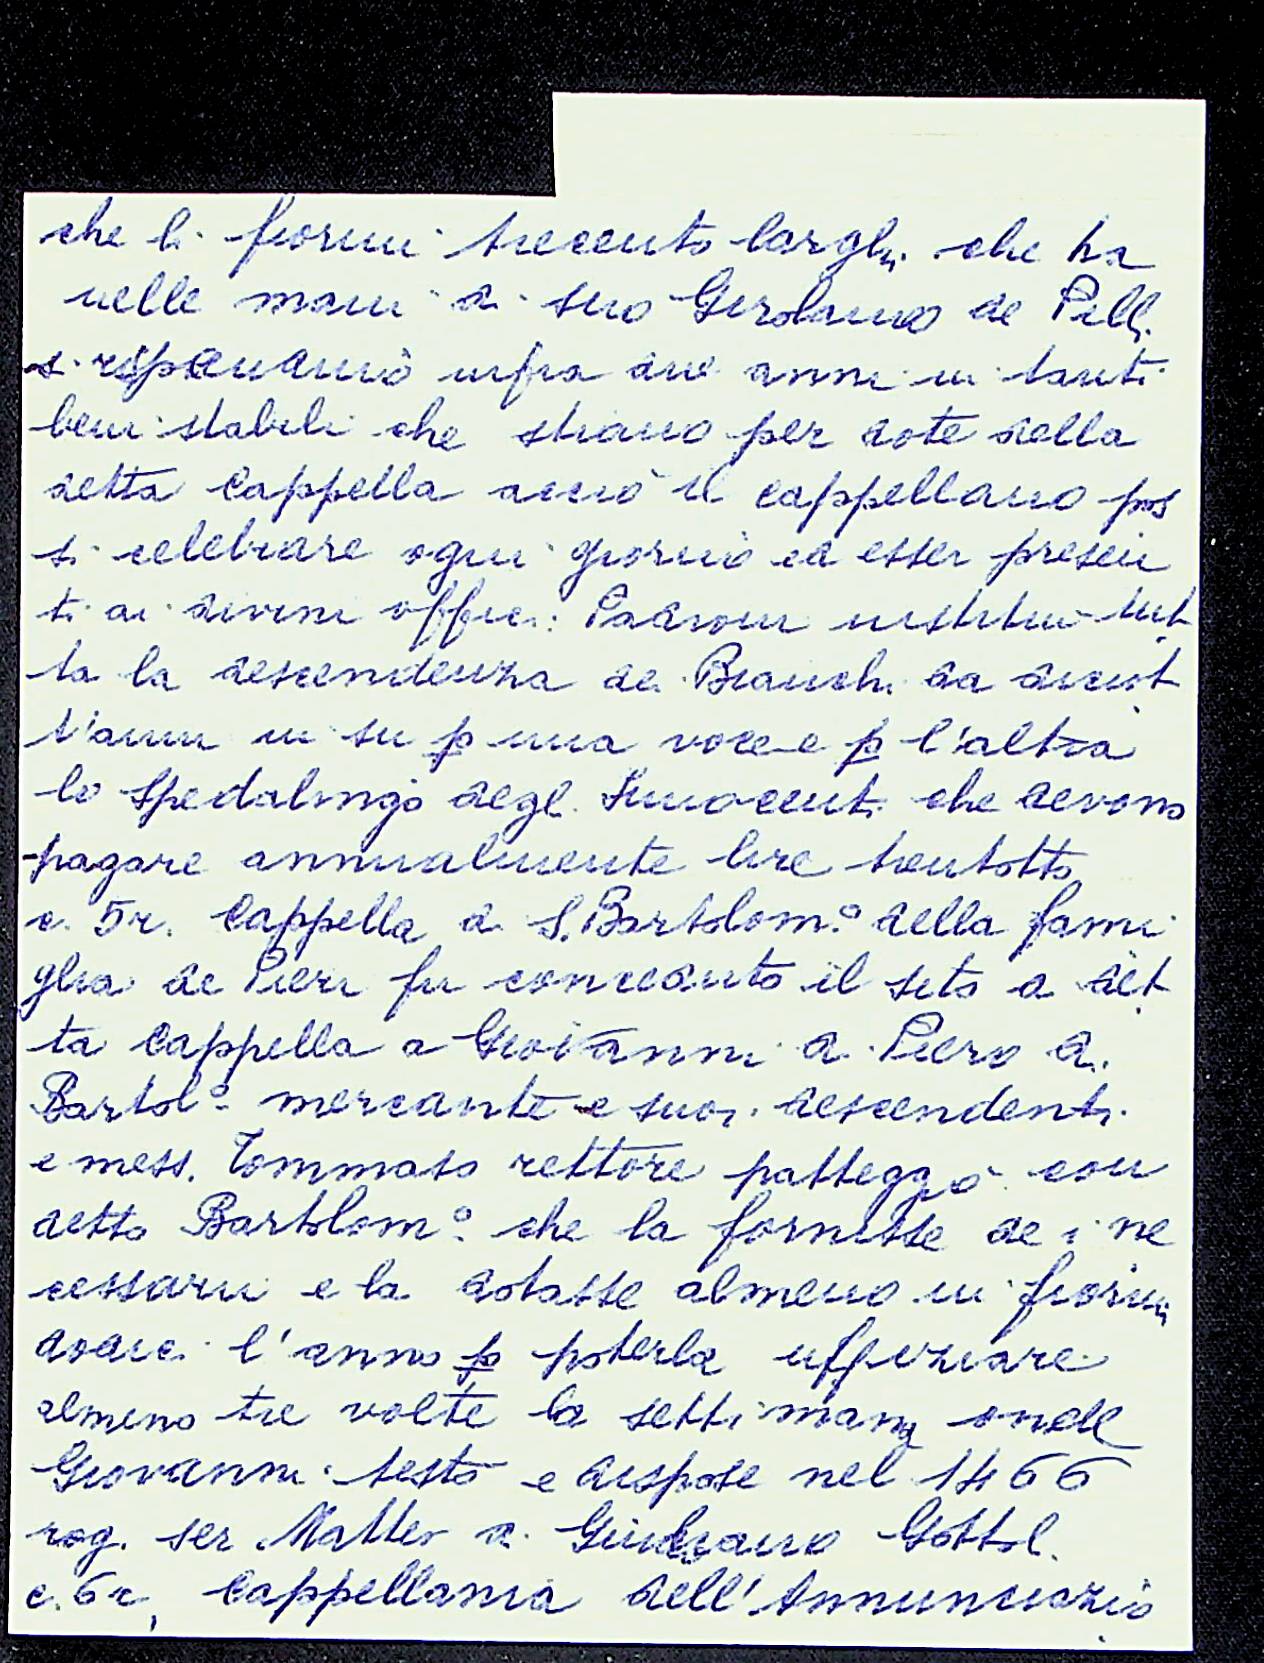 che li fiorini trecento larghi che ha
nelle mani di suo Girolamo de Pilli
si rispendino infra due anni in tanti
beni stabili che stiano per dote della
detta Cappella acciò il cappellano pos
si celebrare ogni giorno ed esser presen
ti ai divini offici: Padroni instituì tut
ta la descendenza de Bianchi da diciot
t'anni in su p una voce e p l'altra
lo Spedalingo degl. Innocenti che devono
pagare annualmente lire trentotto
c. 5r. Cappella di S. Bartolom.º della fami
glia de Pieri fu conceduto il sito a det
ta Cappella a Giovanni di Piero di
Bartol.º mercante e suoi descendenti
e mess. Tommaso rettore patteggiò con
detto Bartolom.º che la fornisse de i ne
cessarii e la dotasse almeno in fiorini
dodici l'anno p poterla uffiziare
almeno tre volte la settimana onde
Giovanni testò e dispose nel 1466
rog. ser Matteo di Giuliano Gottol.
c. 6r, Cappellania dell'Annunciazio